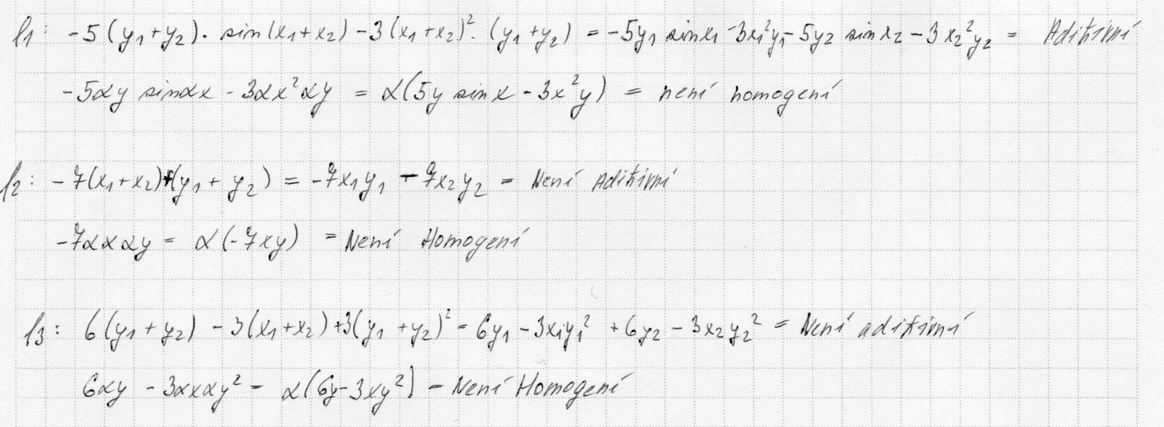 f1: -5(y₁+y₂)· sin(x₁+x₂) -3(x₁+x₂)²·(y₁+y₂) = -5y₁ sinx₁ -3x₁²y₁ -5y₂ sin x₂ -3x₂²y₂ = Aditivní
-5αy sinαx - 3αx²αy = α(5y sinx - 3x²y) = není homogení
f2: -7(x₁+x₂)+(y₁+y₂) = -7x₁y₁ - 7x₂y₂ = Není Aditivní
-7αxαy = α(-7xy) = Není Homogení
f3: 6(y₁+y₂) -3(x₁+x₂)+3(y₁+y₂)² = 6y₁ - 3x₁y₁² +6y₂ - 3x₂y₂² = Není aditivní
6αy - 3αxαy² = α(6y-3xy²) = Není Homogení